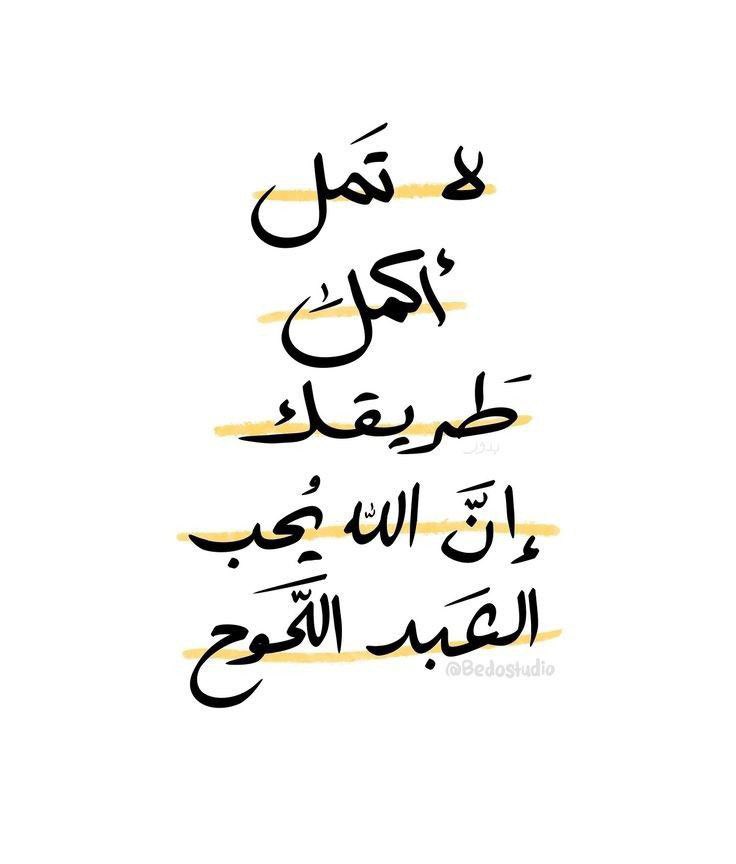 لا تَمل
أكملْ
طَريقك
بدور
إنَّ الله يُحب
العَبد اللَّحَوح
@Bedostudio